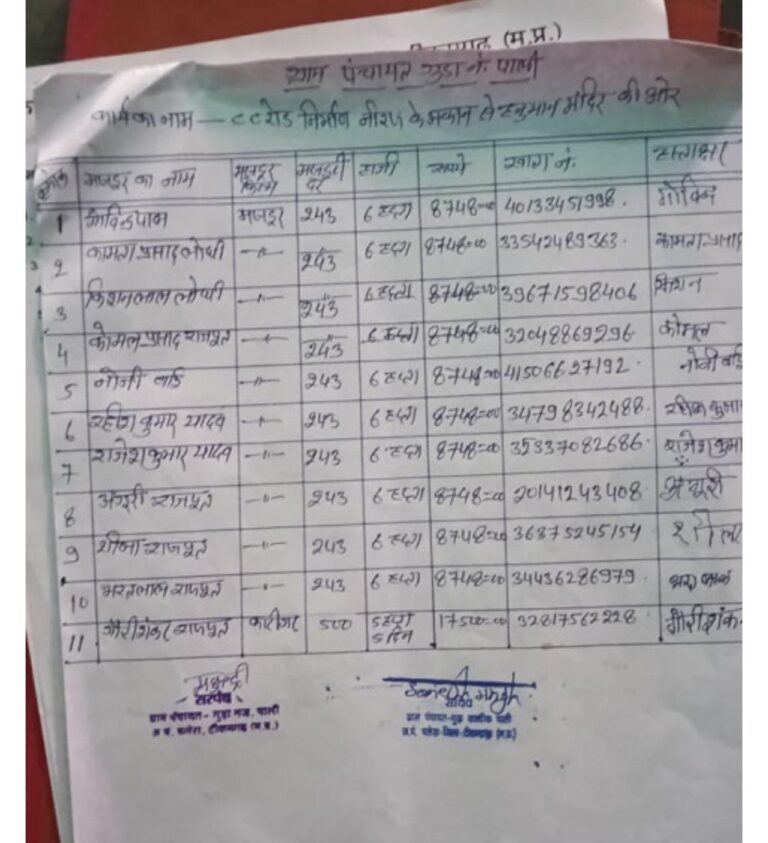 (म.प्र.)
ग्राम पंचायत गुडा नं. पाली
कार्य का नाम — C C रोड निर्माण नीरज के मकान से हनुमान मंदिर की ओर
क्रमांक मजदूर का नाम मजदूर किस्म मजदूरी दर हाजरी रुपये खाता नं. हस्ताक्षर
1 मजदूर 243 6 हफ्ता 8748=00 40133451998. गोविन्द
2 कामता प्रसाद लोधी —"— 243 6 हफ्ता 8748=00 33542489363. कामता प्रसाद
3 किशनलाल लोधी —"— 243 6 हफ्ता 8748=00 39671598406 किशन
4 कोमल प्रसाद राजपूत —"— 243 6 हफ्ता 8748=00 32048869296 कोमल
5 बाई —"— 243 6 हफ्ता 8748=00 41506627192. बाई
6 कुमार यादव —"— 243 6 हफ्ता 8748=00 34798342488. कुमा
7 राजेश कुमार यादव —"— 243 6 हफ्ता 8748=00 35337082686. राजेश कुमा
8 अंगूरी राजपूत —"— 243 6 हफ्ता 8748=00 20141243408. अंगूरी
9 राजपूत —"— 243 6 हफ्ता 8748=00 36875245154
10 भरतलाल राजपूत —"— 243 6 हफ्ता 8748=00 34436286979.
11 गौरीशंकर राजपूत कारीगर 500 5 हफ्ता 5 दिन 17500=00 32817562228. गौरीशंक
सरपंच
ग्राम पंचायत- गुड़ा नज. पाली
ज.पं. पलेरा, टीकमगढ़ (म.प्र.)
सचिव
ग्राम पंचायत-गुड़ा पाली
ज.पं. पलेरा-जिला-टीकमगढ़ (म.प्र.)